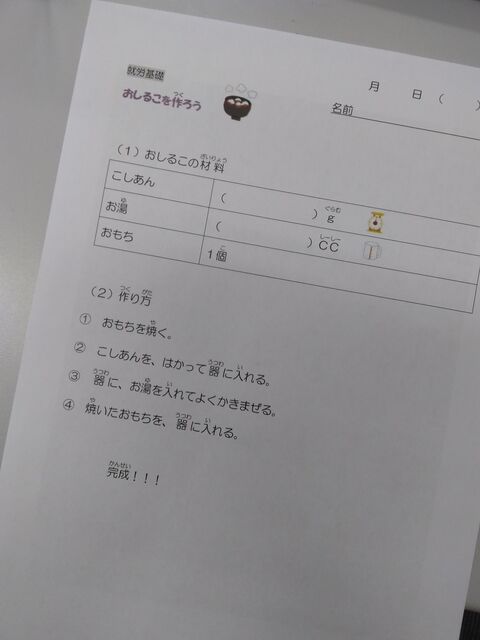 就労基礎
月 日（ ）
おしるこを作ろう
名前
（１）おしるこの材料
こしあん （ ）g
お湯 （ ）CC
おもち １個
（２）作り方
① おもちを焼く。
② こしあんを、はかって器に入れる。
③ 器に、お湯を入れてよくかきまぜる。
④ 焼いたおもちを、器に入れる。
完成！！！